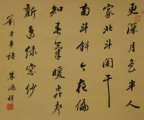 更深月色半人
家北斗闌干
南斗斜今夜偏
知春氣暖虫聲
新透綠窗紗
劉方平詩